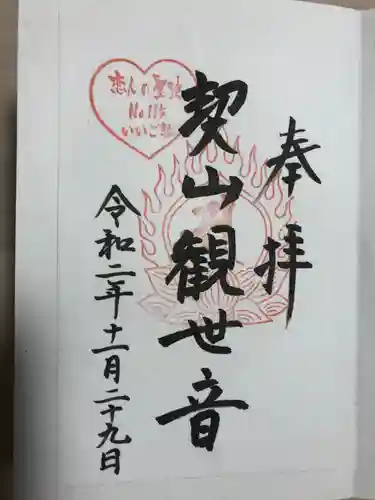 奉拝
契山観世音
令和二年十一月二十九日
恋人の聖地
No.115
いいご縁